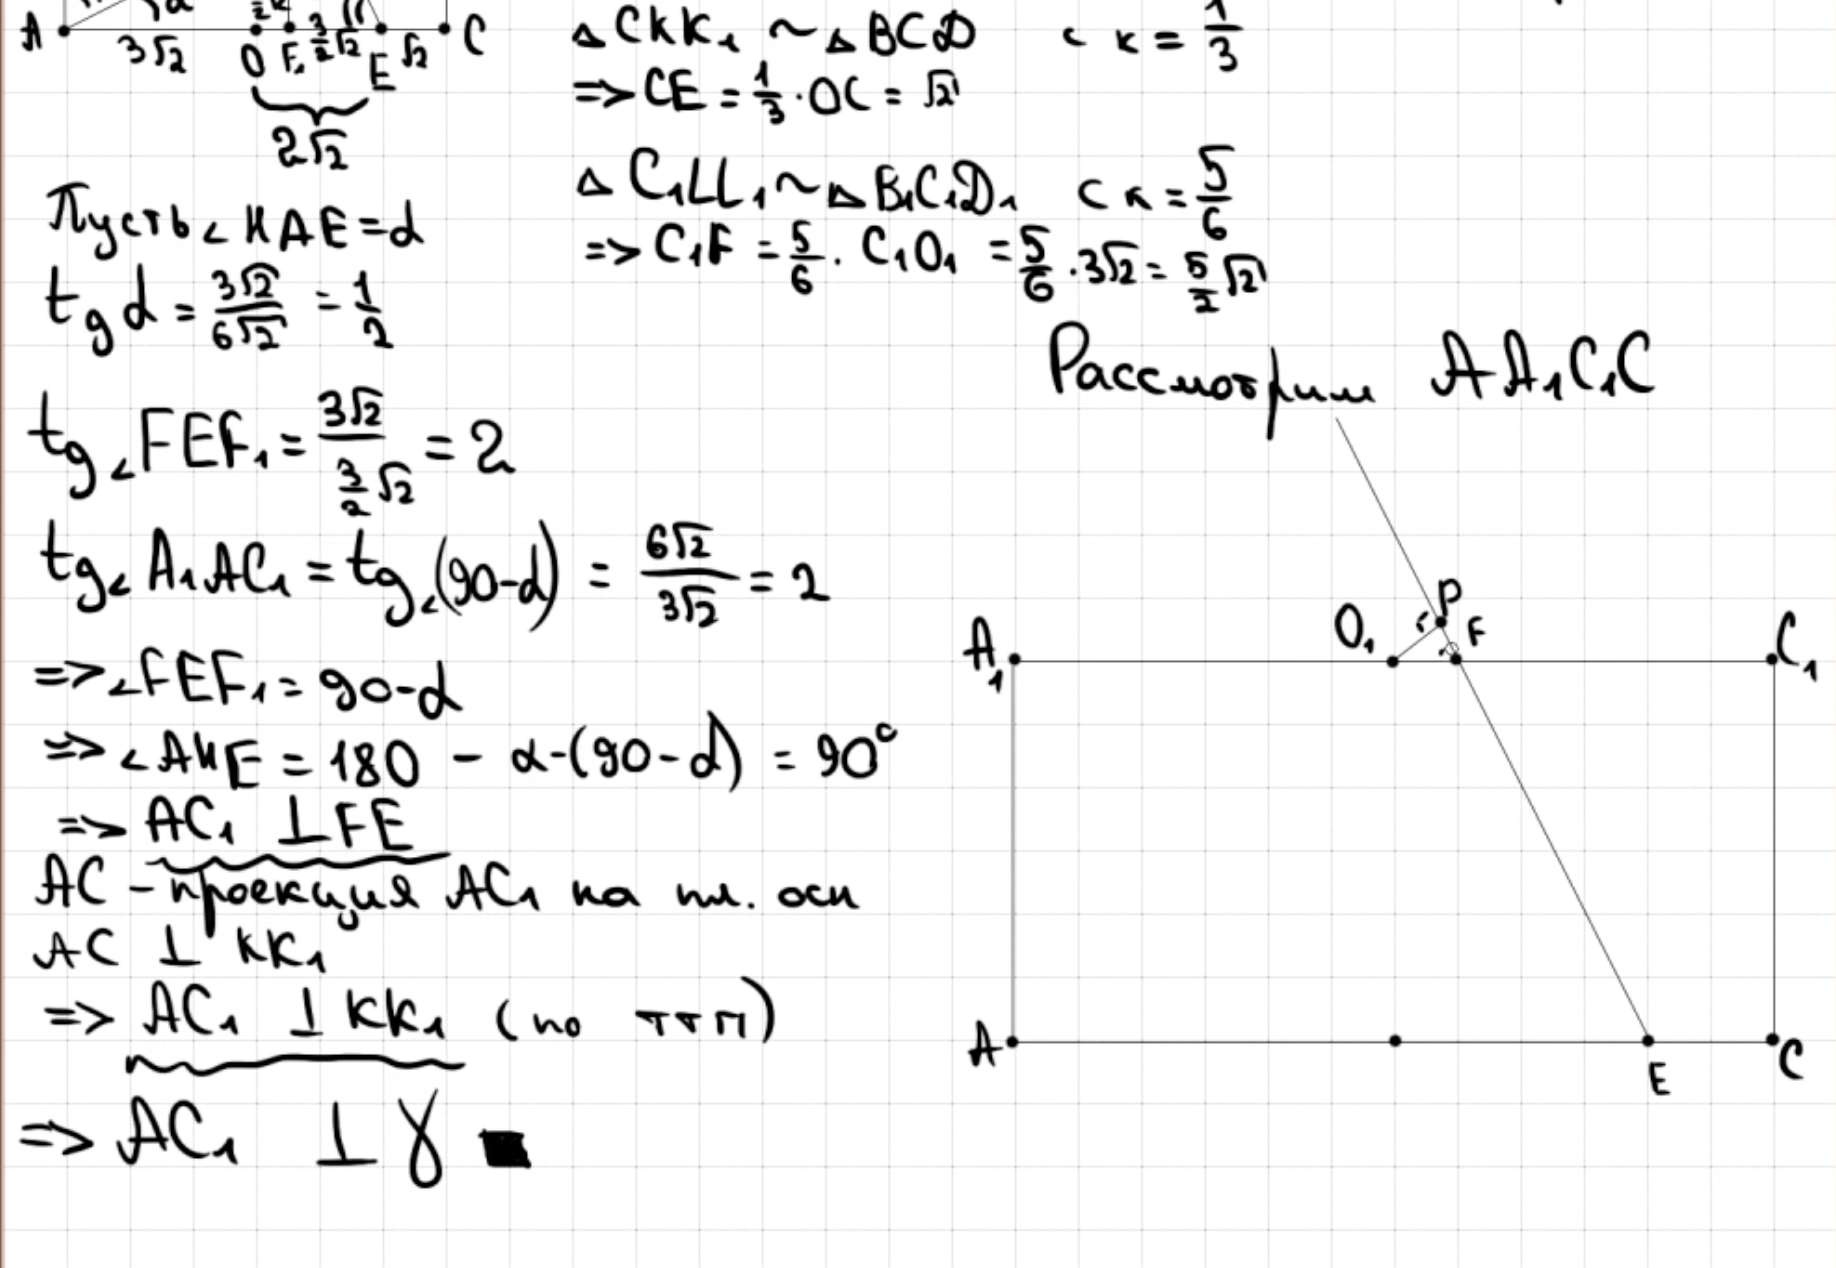 A 3√2 O F₁ 3/2√2 E √2 C
2√2
△CKK₁ ~ △BCD с к = 1/3
=> CE = 1/3 · OC = √2
△C₁LL₁ ~ △B₁C₁D₁ с к = 5/6
=> C₁F = 5/6 · C₁O₁ = 5/6 · 3√2 = 5/2 √2
Пусть ∠HAE = α
tg α = 3√2/6√2 = 1/2
tg∠FEF₁ = 3√2/(3/2 √2) = 2
tg∠A₁AC₁ = tg∠(90-α) = 6√2/3√2 = 2
=> ∠FEF₁ = 90-α
=> ∠AHE = 180 - α-(90-α) = 90°
=> AC₁ ⊥ FE
AC - проекция AC₁ на пл. осн
AC ⊥ KK₁
=> AC₁ ⊥ KK₁ (по ТТП)
=> AC₁ ⊥ γ
Рассмотрим AA₁C₁C
P
A₁ O₁ F C₁
A E C